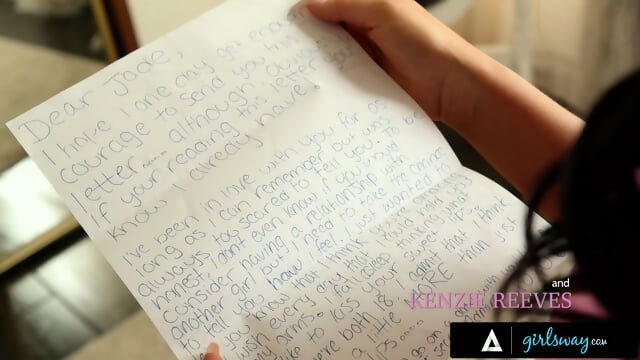 Dear Jade,
I hope I one day get enough
courage to send you this
letter.... although
If your reading this letter you
know I already have.
I've been in love with you for as
long as I can remember but was
always too scared to tell you. To be
honest, I dont even know if you would
consider having a relationship with
another girl but I need to take the chance
to tell you how I feel. I just wanted
you know that I think
wish every day that I could hold you
my arms. I fall asleep thinking
like to kiss your super
we're both
a little MORE than just
and
KENZIE REEVES
girlsway.com